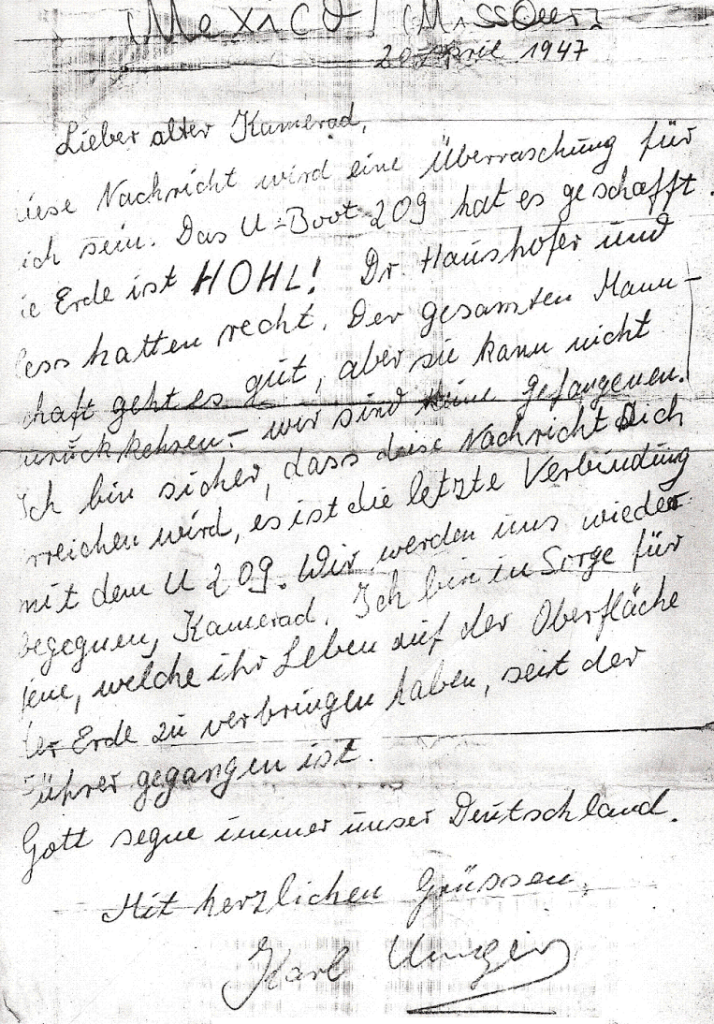 (Mexico) (Missouri)
20 April 1947
Lieber alter Kamerad,
iese Nachricht wird eine Überraschung für
ich sein. Das U-Boot 209 hat es geschafft.
ie Erde ist HOHL! Dr. Haushofer und
ess hatten recht. Der gesamten Mann-
chaft geht es gut, aber sie kann nicht
urückkehren. - wir sind keine gefangenen.
Ich bin sicher, dass diese Nachricht Dich
rreichen wird, es ist die letzte Verbindung
mit dem U 209. Wir werden uns wieder
begegnen, Kamerad. Ich bin in Sorge für
jene, welche ihr Leben auf der Oberfläche
der Erde zu verbringen haben, seit der
Führer gegangen ist.
Gott segne immer unser Deutschland.
Mit herzlichen Grüssen,
Karl Unger